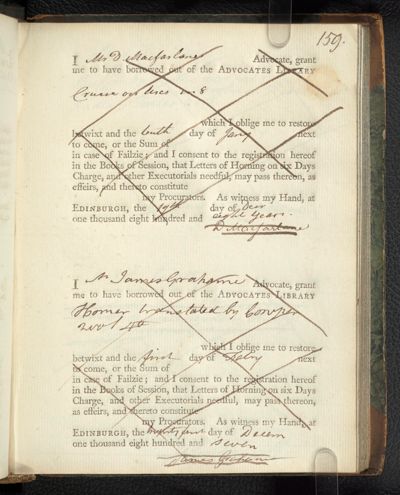 159.
I Mr D. Macfarlane Advocate, grant
me to have borrowed out of the ADVOCATES LIBRARY
8
which I oblige me to restore
betwixt and the tenth day of Jany next
to come, or the Sum of
in case of Failzie; and I consent to the registration hereof
in the Books of Session, that Letters of Horning on six Days
Charge, and other Executorials needful, may pass thereon, as
effeirs, and thereto constitute
my Procurators. As witness my Hand, at
EDINBURGH, the 19th day of Decr
one thousand eight hundred and eight years.
D. Macfarlane
I Mr James Grahame Advocate, grant
me to have borrowed out of the ADVOCATES LIBRARY
Homer translated by Cowper
2 vol 4to
which I oblige me to restore
betwixt and the first day of Feby next
to come, or the Sum of
in case of Failzie; and I consent to the registration hereof
in the Books of Session, that Letters of Horning on six Days
Charge, and other Executorials needful, may pass thereon,
as effeirs, and thereto constitute
my Procurators. As witness my Hand, at
EDINBURGH, the day of Decem
one thousand eight hundred and seven
James Grahame